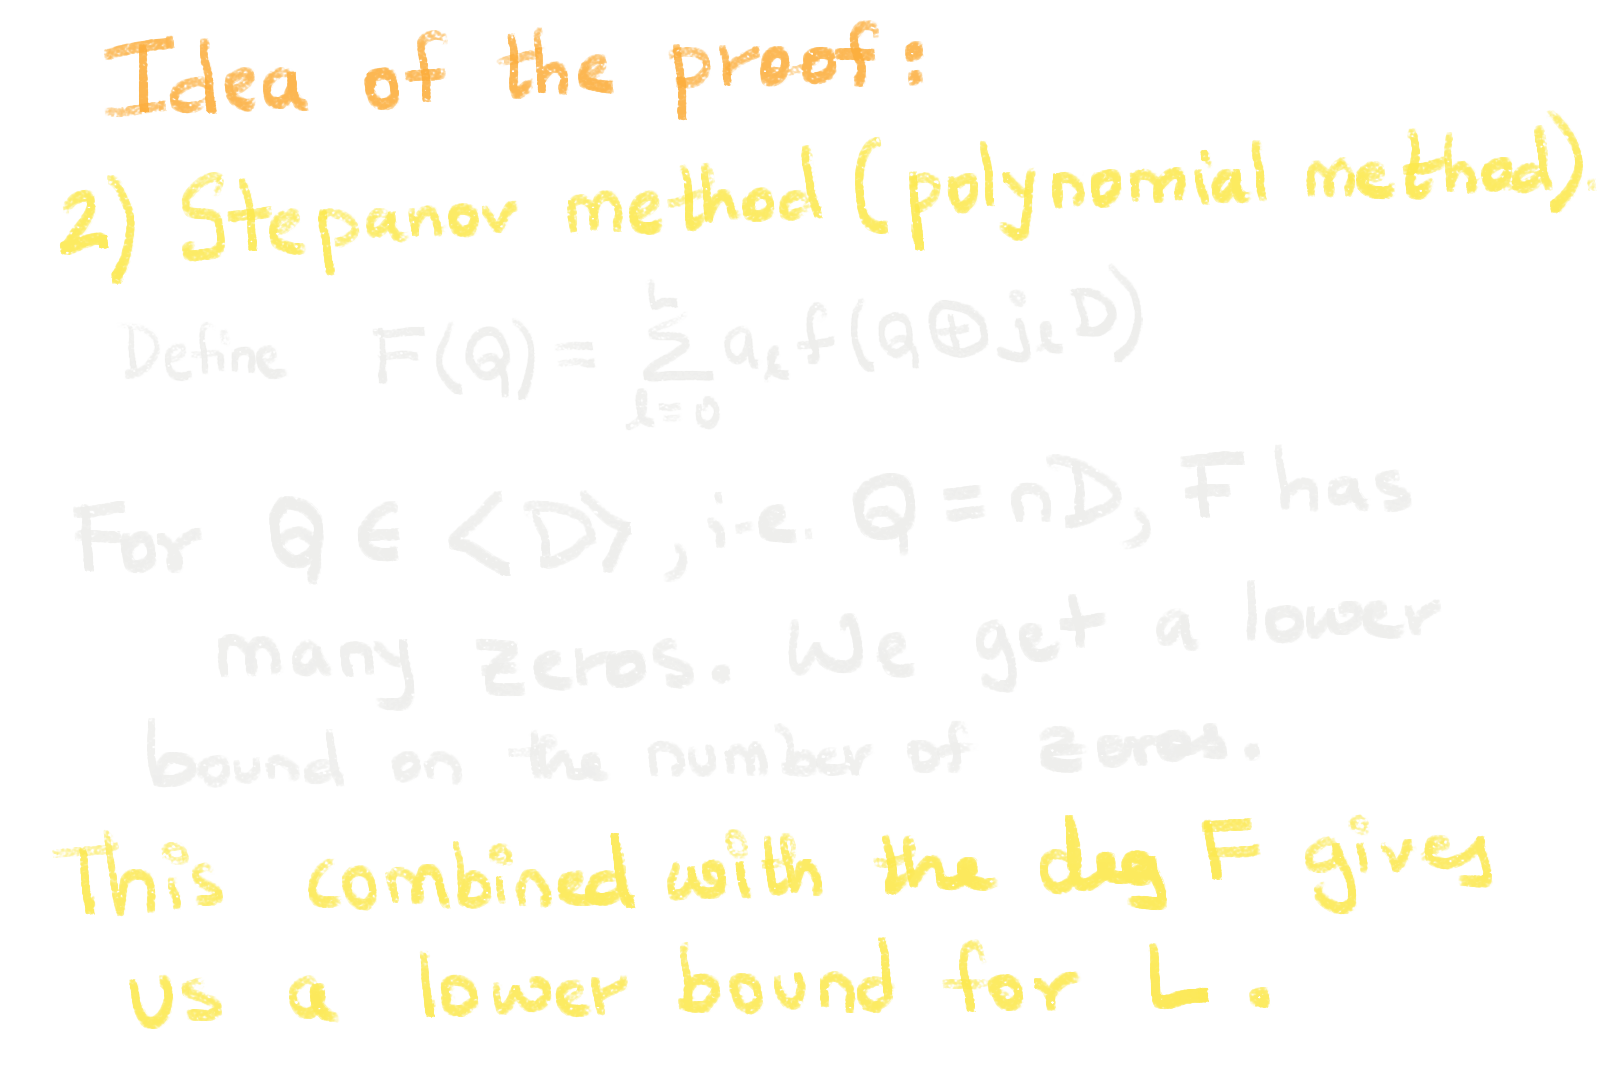 Idea of the proof:
2) Stepanov method (polynomial method).
Define F(Q) = ∑_{l=0}^{h} a_l f(Q ⊕ j_l D)
For Q ∈ <D>, i.e. Q = nD, F has
many zeros. We get a lower
bound on the number of zeros.
This combined with the deg F gives
us a lower bound for L.